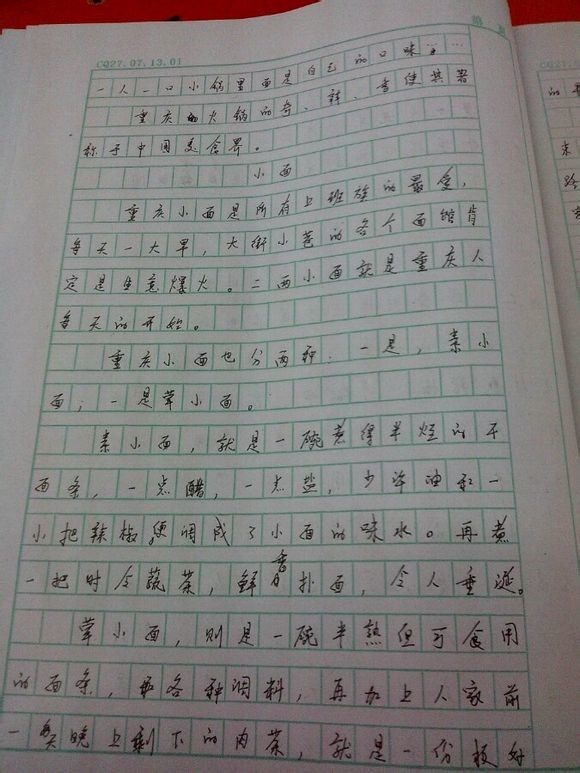 CQ27.07.13.01
一人一口小锅里面是自己的口味……
重庆的火锅的奇、鲜、香使其著
称于中国美食界。
小面
重庆小面是所有上班族的最爱,
每天一大早,大街小巷的各个面馆肯
定是生意爆火。二两小面就是重庆人
每天的开始。
重庆小面也分两种:一是,素小
面,一是荤小面。
素小面,就是一碗煮得半烂的
面条,一点醋,一点盐,少许油和一
小把辣椒便调成了小面的味水。再煮
一把时令蔬菜,鲜香扑面,令人垂涎。
荤小面,则是一碗半熟但可食用
的面条,各种调料,再加上人家前
一天晚上剩下的肉菜,就是一份极好